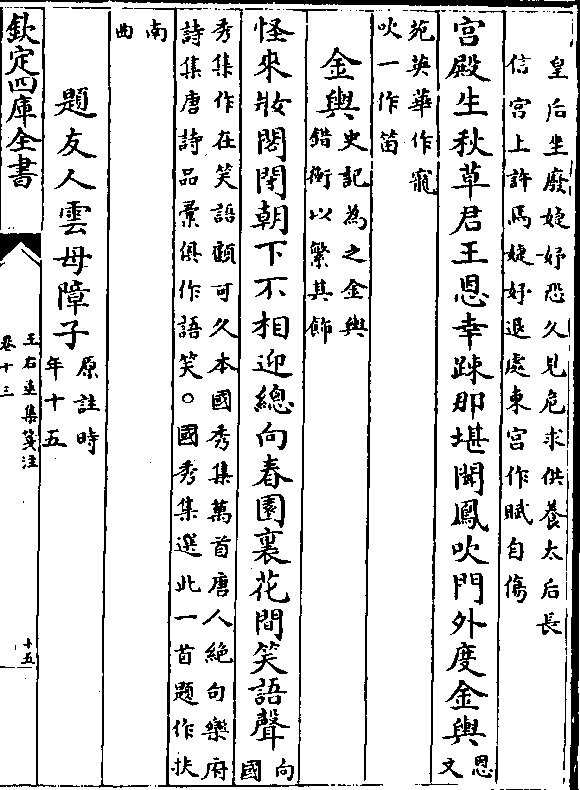 皇后坐廢婕妤恐久見危求供養太后長
信宮上許焉婕妤退處東宮作賦自傷
宮殿生秋草君王恩幸踈那堪聞鳳吹門外度金輿恩文
苑英華作寵
吹一作笛
金輿史記為之金輿
錯衡以繁其飾
怪來妝閣閉朝下不相迎總向春園裏花間笑語聲向國
秀集作在笑語顧可久本國秀集萬首唐人絕句樂府
詩集唐詩品彙俱作語笑○國秀集選此一首題作扶
南
曲
題友人雲母障子原註時
年十五
欽定四庫全書
王右丞集箋注
卷十三
十五